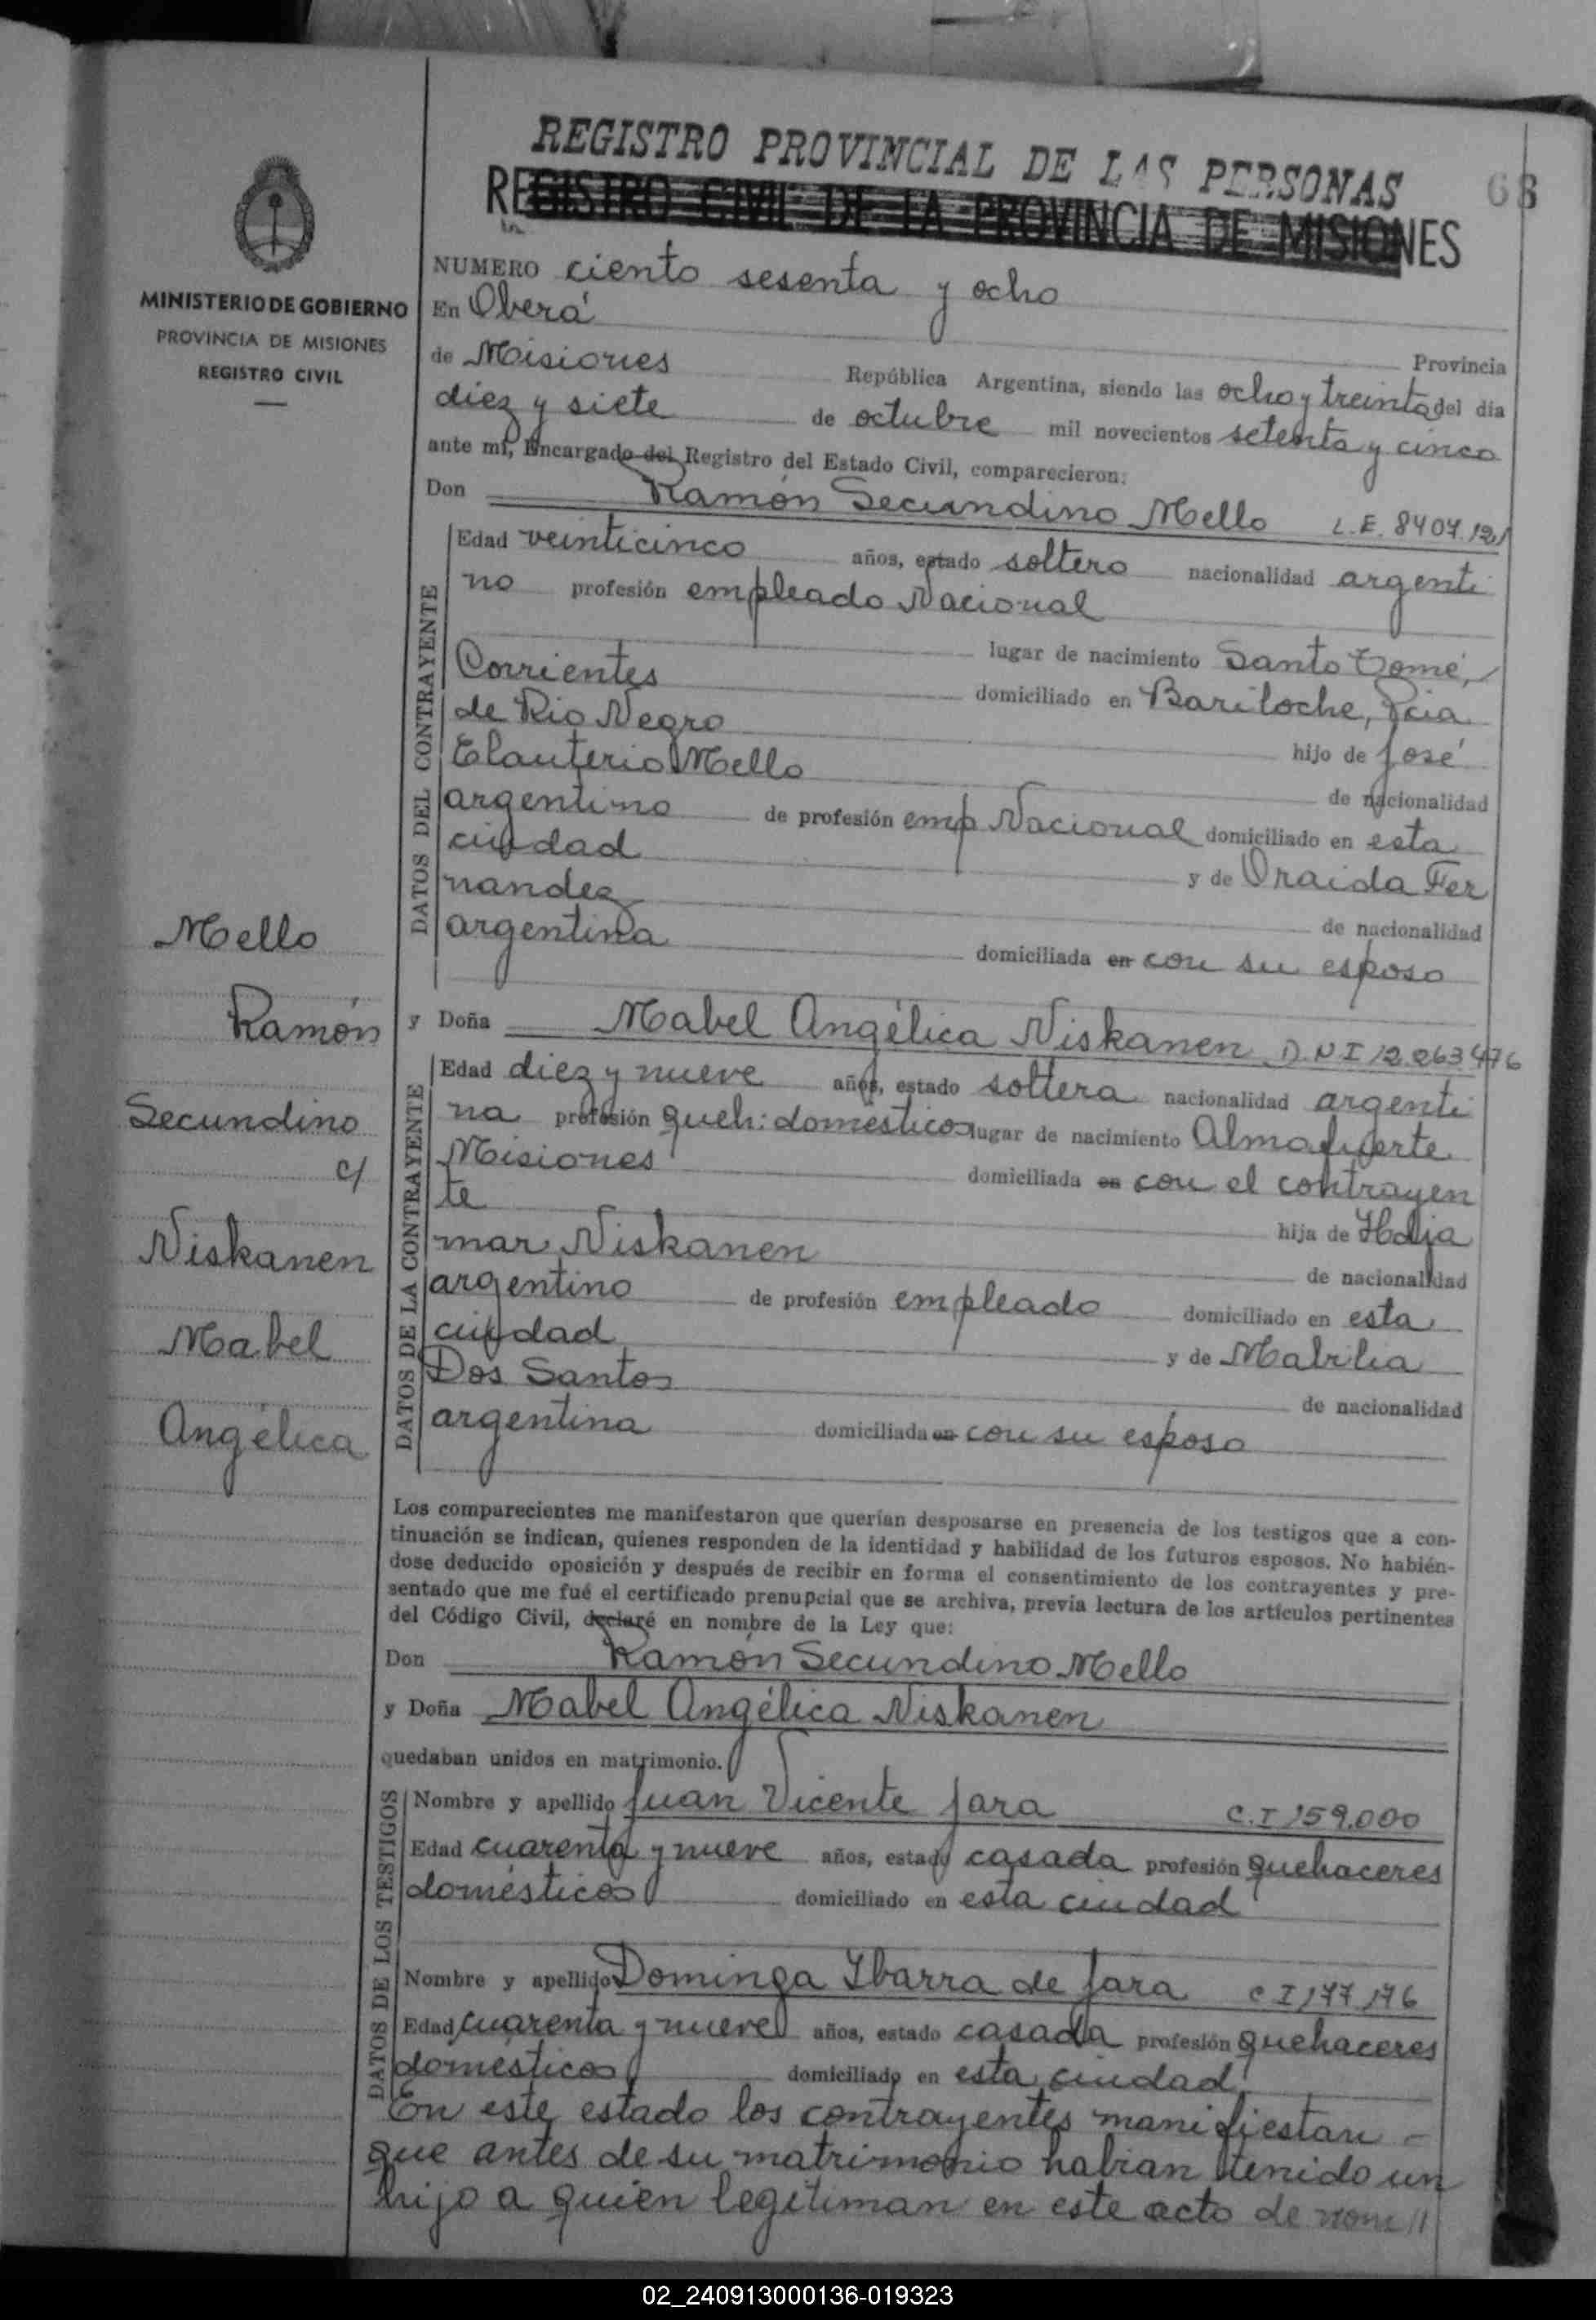 REGISTRO PROVINCIAL DE LAS PERSONAS
68
REGISTRO CIVIL DE LA PROVINCIA DE MISIONES
MINISTERIO DE GOBIERNO
PROVINCIA DE MISIONES
REGISTRO CIVIL
NUMERO ciento sesenta y ocho
En Oberá
Provincia
de Misiones República Argentina, siendo las ocho y treinta del dia
diez y siete de octubre mil novecientos setenta y cinco
ante mí, Encargado del Registro del Estado Civil, comparecieron:
Don Ramón Secundino Mello L.E. 8407.121
DATOS DEL CONTRAYENTE
Edad veinticinco años, estado soltero nacionalidad argenti
no profesión empleado Nacional
lugar de nacimiento Santo Tomé,
Corrientes domiciliado en Bariloche, Pcia
de Rio Negro hijo de José
Elauterio Mello de nacionalidad
argentino de profesión emp Nacional domiciliado en esta
ciudad y de Oraida Fer
nandez de nacionalidad
argentina domiciliada en con su esposo
Mello
Ramón
Secundino
c/
Niskanen
Mabel
Angélica
y Doña Mabel Angélica Niskanen D.N.I 12.263476
DATOS DE LA CONTRAYENTE
Edad diez y nueve años, estado soltera nacionalidad argenti
na profesión queh: domésticos lugar de nacimiento Almafuerte
Misiones domiciliada en con el contrayen
te hija de
mar Niskanen de nacionalidad
argentino de profesión empleado domiciliado en esta
ciudad y de
Dos Santos de nacionalidad
argentina domiciliada en con su esposo
Los comparecientes me manifestaron que querían desposarse en presencia de los testigos que a con-
tinuación se indican, quienes responden de la identidad y habilidad de los futuros esposos. No habién-
dose deducido oposición y después de recibir en forma el consentimiento de los contrayentes y pre-
sentado que me fué el certificado prenupcial que se archiva, previa lectura de los artículos pertinentes
del Código Civil, declaré en nombre de la Ley que:
Don Ramón Secundino Mello
y Doña Mabel Angélica Niskanen
quedaban unidos en matrimonio.
DATOS DE LOS TESTIGOS
Nombre y apellido Juan Vicente Jara C.I 159.000
Edad cuarenta y nueve años, estado casada profesión quehaceres
domésticos domiciliado en esta ciudad
Nombre y apellido Dominga Ibarra de Jara C I 177 176
Edad cuarenta y nueve años, estado casada profesión quehaceres
domésticos domiciliado en esta ciudad
En este estado los contrayentes manifiestan -
que antes de su matrimonio habian tenido un
hijo a quien legitiman en este acto de nom//
02_240913000136-019323